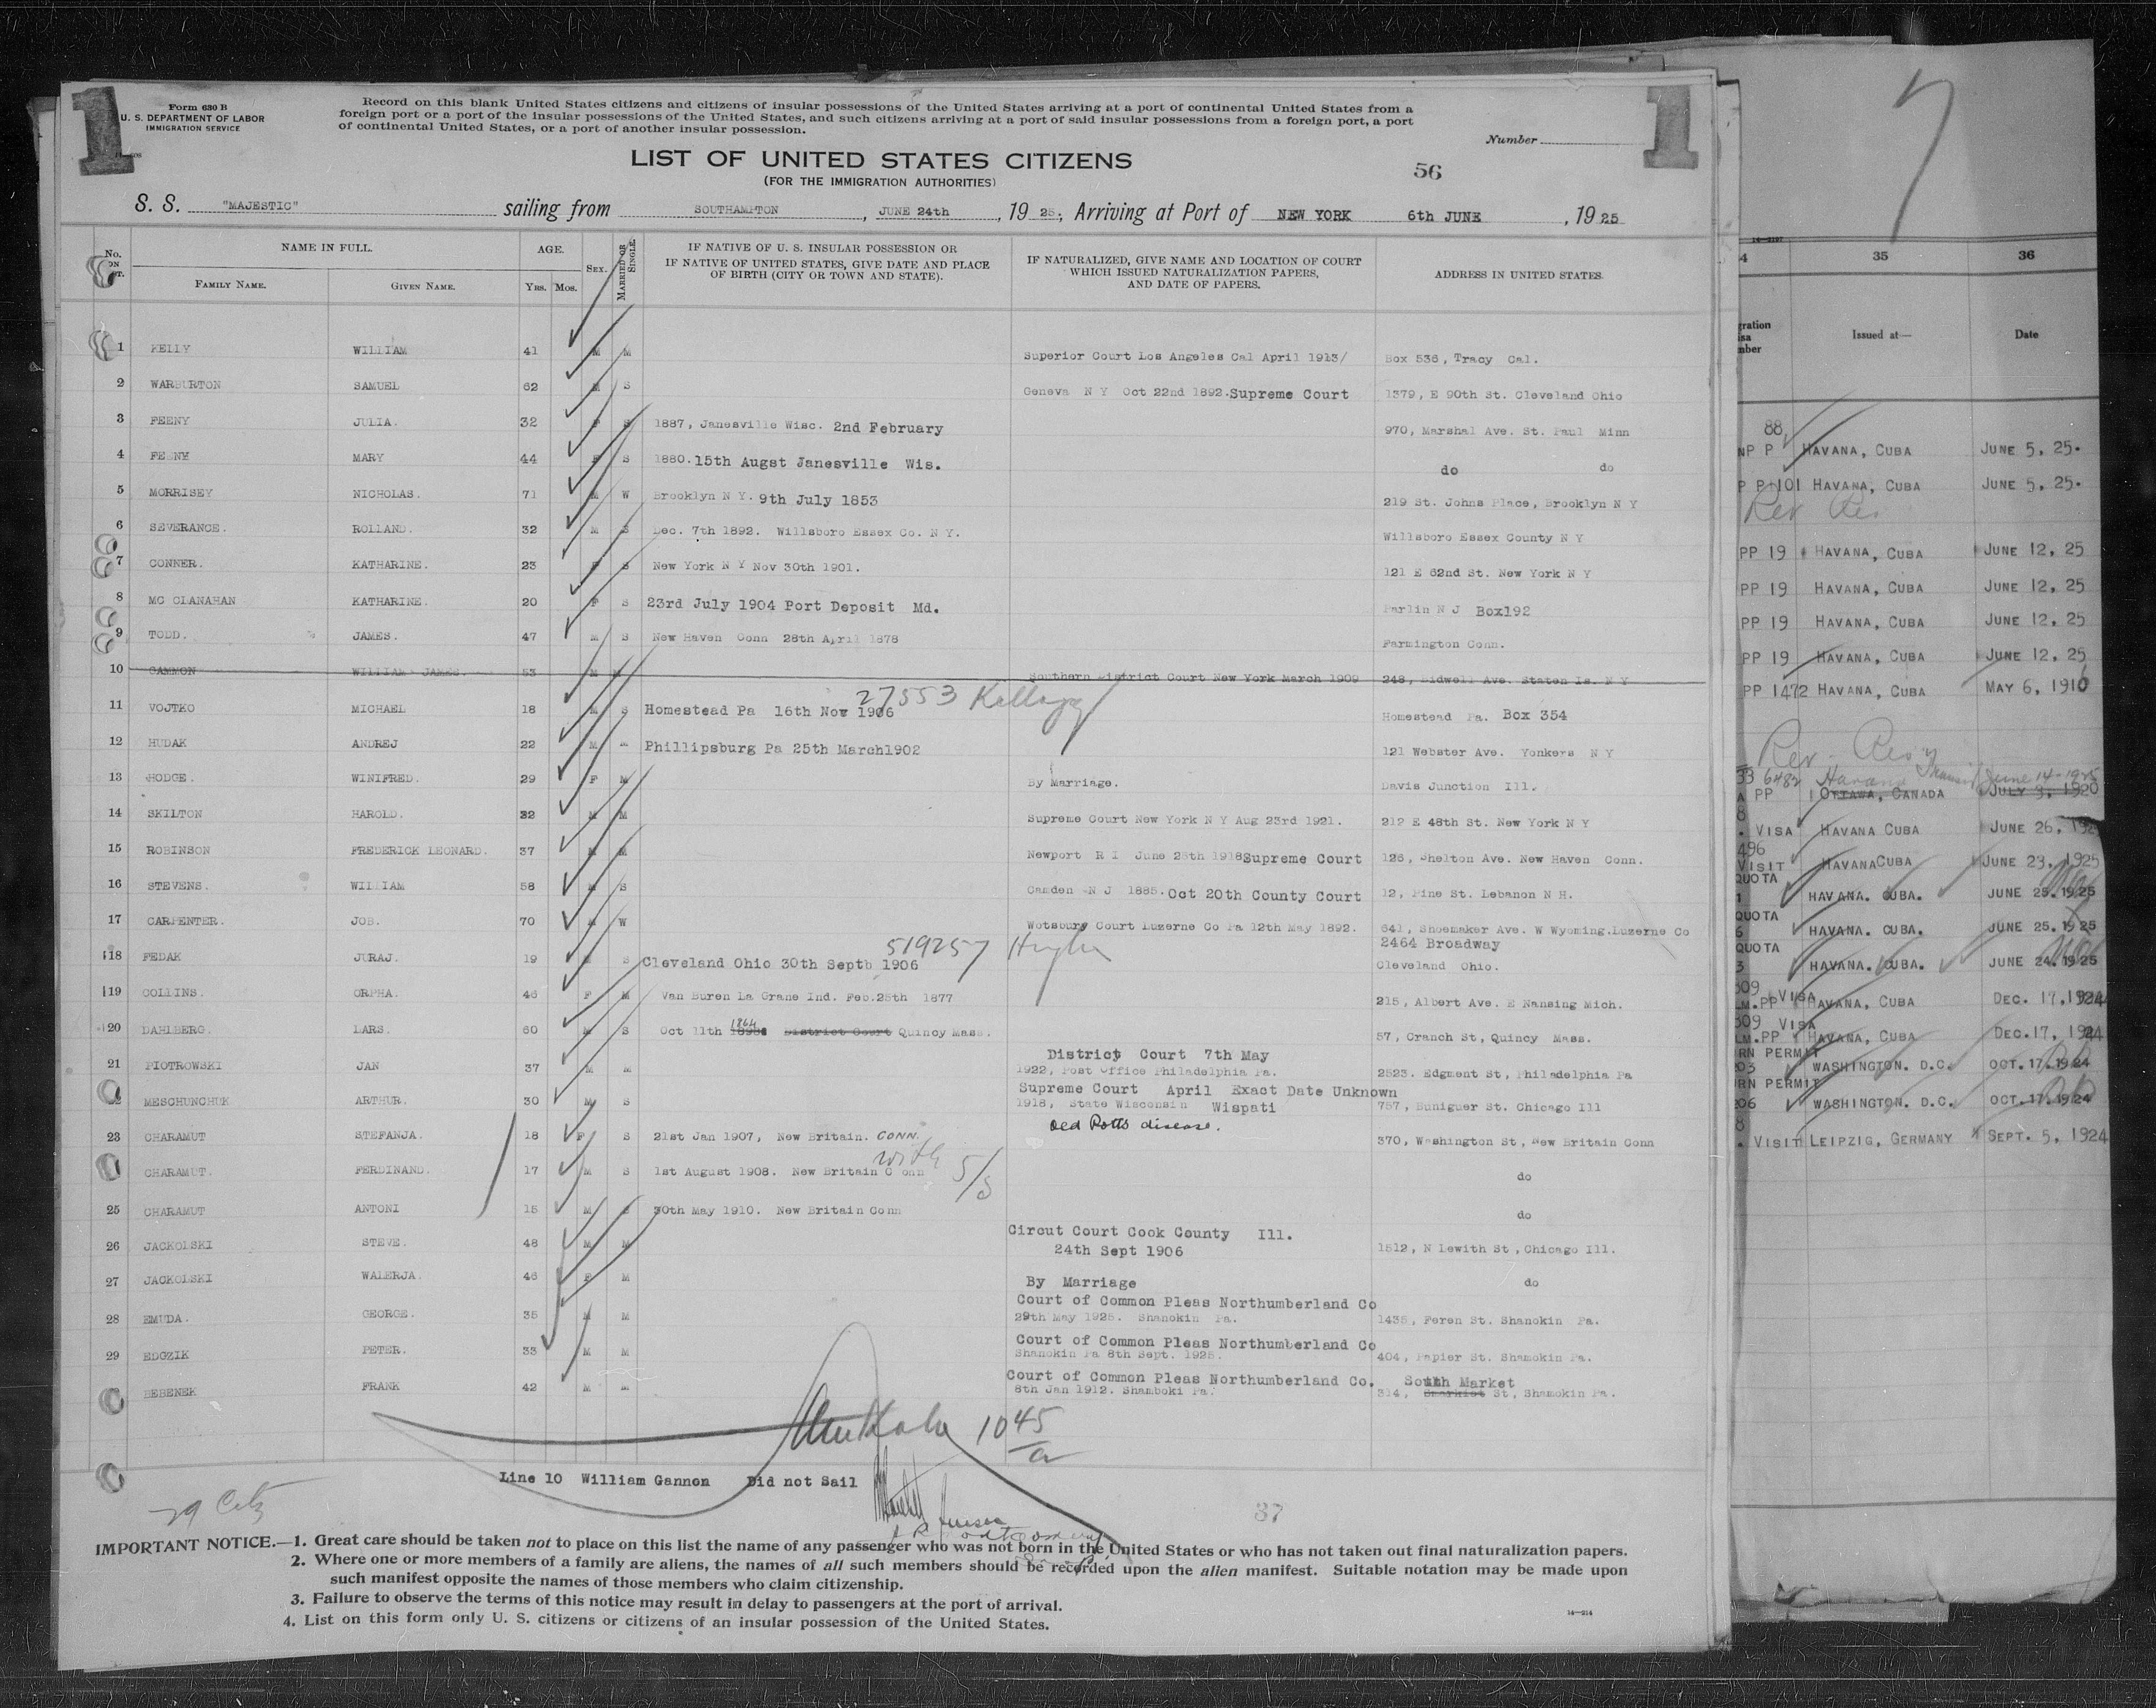 1
1
Form 630 B
U. S. DEPARTMENT OF LABOR
IMMIGRATION SERVICE
Record on this blank United States citizens and citizens of insular possessions of the United States arriving at a port of continental United States from a
foreign port or a port of the insular possessions of the United States, and such citizens arriving at a port of said insular possessions from a foreign port, a port
of continental United States, or a port of another insular possession.
Number
LIST OF UNITED STATES CITIZENS
(FOR THE IMMIGRATION AUTHORITIES)
56
S. S. "MAJESTIC" sailing from SOUTHAMPTON, JUNE 24th, 19 25, Arriving at Port of NEW YORK 6th JUNE, 19 25
No. NAME IN FULL. AGE. SEX. MARRIED OR SINGLE. IF NATIVE OF U. S. INSULAR POSSESSION OR IF NATIVE OF UNITED STATES, GIVE DATE AND PLACE OF BIRTH (CITY OR TOWN AND STATE). IF NATURALIZED, GIVE NAME AND LOCATION OF COURT WHICH ISSUED NATURALIZATION PAPERS, AND DATE OF PAPERS. ADDRESS IN UNITED STATES.
FAMILY NAME. GIVEN NAME. YRS. MOS.
1 KELLY WILLIAM 41 M M Superior Court Los Angeles Cal April 1913/ Box 536, Tracy Cal.
2 WARBURTON SAMUEL 62 M S Geneva N Y Oct 22nd 1892.Supreme Court 1379, E 90th St. Cleveland Ohio
3 FEENY JULIA. 32 F S 1887, Janesville Wisc. 2nd February 970, Marshal Ave. St. Paul Minn
4 FEENY MARY 44 F S 1880.15th Augst Janesville Wis. do do
5 MORRISEY NICHOLAS. 71 M W Brooklyn N Y. 9th July 1853 219 St. Johns Place, Brooklyn N Y
6 SEVERANCE. ROLLAND. 32 M S Dec. 7th 1892. Willsboro Essex Co. N Y. Willsboro Essex County N Y
7 CONNER. KATHARINE. 23 F S New York N Y Nov 30th 1901. 121 E 62nd St. New York N Y
8 MC CLANAHAN KATHARINE. 20 F S 23rd July 1904 Port Deposit Md. Parlin N J Box192
9 TODD. JAMES. 47 M S New Haven Conn 28th April 1878 Farmington Conn.
10 GAMMON WILLIAM JAMES. 53 M M Southern District Court New York March 1909 248, Bidwell Ave. Staten Is. N Y
27553 Kellogg
11 VOJTKO MICHAEL 18 M S Homestead Pa 16th Nov 1906 Homestead Pa. Box 354
12 HUDAK ANDREJ 22 M M Phillipsburg Pa 25th March1902 121 Webster Ave. Yonkers N Y
13 HODGE. WINIFRED. 29 F M By Marriage. Davis Junction Ill.
14 SKILTON HAROLD. 32 M M Supreme Court New York N Y Aug 23rd 1921. 212 E 48th St. New York N Y
15 ROBINSON FREDERICK LEONARD. 37 M M Newport R I June 25th 1918Supreme Court 126, Shelton Ave. New Haven Conn.
16 STEVENS. WILLIAM 58 M S Camden N J 1885.Oct 20th County Court 12, Pine St. Lebanon N H.
17 CARPENTER. JOB. 70 M W Wotsbury Court Luzerne Co Pa 12th May 1892. 641, Shoemaker Ave. W Wyoming.Luzerne Co
519257
2464 Broadway
18 FEDAK JURAJ. 19 M S Cleveland Ohio 30th Septb 1906 Cleveland Ohio.
19 COLLINS. ORPHA. 46 F M Van Buren La Grane Ind. Feb.25th 1877 215, Albert Ave. E Nansing Mich.
1864
20 DAHLBERG. LARS. 60 M S Oct 11th District Court Quincy Mass. 57, Cranch St, Quincy Mass.
District Court 7th May
21 PIOTROWSKI JAN 37 M M 1922, Post Office Philadelphia Pa. 2523. Edgment St, Philadelphia Pa
Supreme Court April Exact Date Unknown
22 MESCHUNCHUK ARTHUR. 30 M S 1918, State Wisconsin Wispati 757, Buniguer St. Chicago Ill
old Potts disease.
23 CHARAMUT STEFANJA. 18 F S 21st Jan 1907, New Britain. CONN. 370, Washington St, New Britain Conn
with 5/5
CHARAMUT. FERDINAND. 17 M S 1st August 1908. New Britain C onn do
25 CHARAMUT ANTONI 15 M S 30th May 1910. New Britain Conn do
Circut Court Cook County Ill.
26 JACKOLSKI STEVE. 48 M M 24th Sept 1906 1512, N Lewith St, Chicago Ill.
27 JACKOLSKI WALERJA. 46 F M By Marriage do
Court of Common Pleas Northumberland Co
28 EMUDA. GEORGE. 35 M M 29th May 1925. Shanokin Pa. 1435, Feren St. Shanokin Pa.
Court of Common Pleas Northumberland Co
29 EDGZIK PETER. 33 M M Shanokin Pa 8th Sept. 1925. 404, Papier St. Shamokin Pa.
Court of Common Pleas Northumberland Co. South Market
BEBENEK FRANK 42 M M 8th Jan 1912. Shamboki Pa. 314, St, Shamokin Pa.
1045
Line 10 William Gannon Did not Sail
29 Citz
37
IMPORTANT NOTICE.—1. Great care should be taken not to place on this list the name of any passenger who was not born in the United States or who has not taken out final naturalization papers.
2. Where one or more members of a family are aliens, the names of all such members should be recorded upon the alien manifest. Suitable notation may be made upon
such manifest opposite the names of those members who claim citizenship.
3. Failure to observe the terms of this notice may result in delay to passengers at the port of arrival.
4. List on this form only U. S. citizens or citizens of an insular possession of the United States.
14—214
7
14—2197
4 35 36
gration
isa
mber
Issued at— Date
88
NP P HAVANA, CUBA JUNE 5, 25.
P P 101 HAVANA, CUBA JUNE 5, 25.
Rev Res
PP 19 HAVANA, CUBA JUNE 12, 25
PP 19 HAVANA, CUBA JUNE 12, 25
PP 19 HAVANA, CUBA JUNE 12, 25
PP 19 HAVANA, CUBA JUNE 12, 25
PP 1472 HAVANA, CUBA MAY 6, 1916
Rev - Res
33 6482 Havana Transit June 14-1925
A PP OTTAWA, CANADA JULY 9, 1920
8
. VISA HAVANA CUBA JUNE 26, 192
496
VISIT HAVANACUBA JUNE 23, 1925
QUOTA
1 HAVANA. CUBA. JUNE 25.1925
QUOTA
6 HAVANA. CUBA. JUNE 25.1925
QUOTA
3 HAVANA. CUBA. JUNE 24.1925
309 VISA
LM.PP HAVANA, CUBA DEC. 17, 1924
309 VISA
LM.PP HAVANA, CUBA DEC.17, 1924
RN PERMIT
203 WASHINGTON. D.C. OCT.17.1924
RN PERMIT
206 WASHINGTON. D.C. OCT.17.1924
8
. VISIT LEIPZIG, GERMANY SEPT. 5, 1924